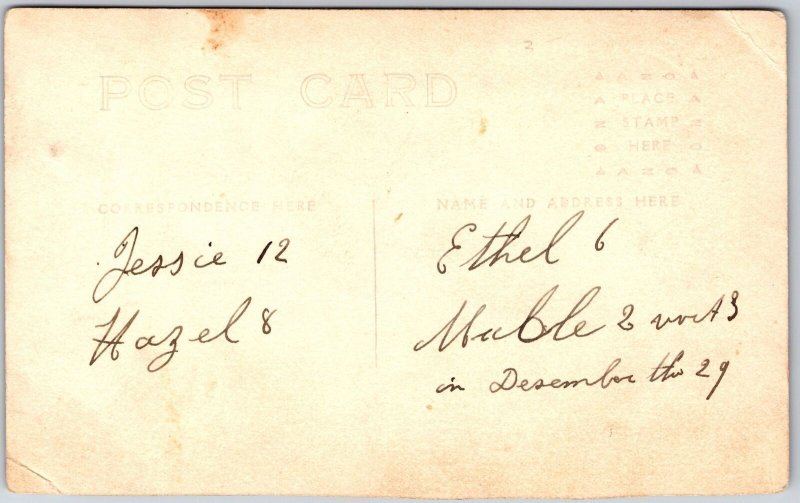 2
POST CARD
AZO
PLACE
STAMP
HERE
CORRESPONDENCE HERE
NAME AND ADDRESS HERE
Jessie 12
Hazel 8
Ethel 6
Mable 2 3
in Desember the 29